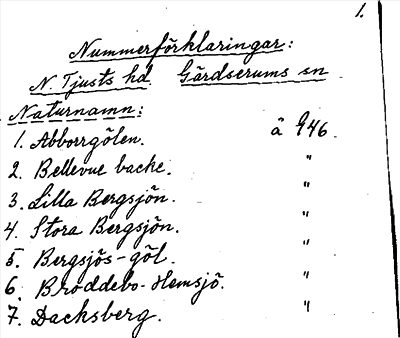 1.
Nummerförklaringar:
N. Tjusts hd. Gärdserums sn
Naturnamn:
1. Abborrgölen. ä 946.
2. Bellevue backe. "
3. Lilla Bergsjön. "
4. Stora Bergsjön. "
5. Bergsjös-göl. "
6. Broddebo-Hemsjö. "
7. Dacksberg. "